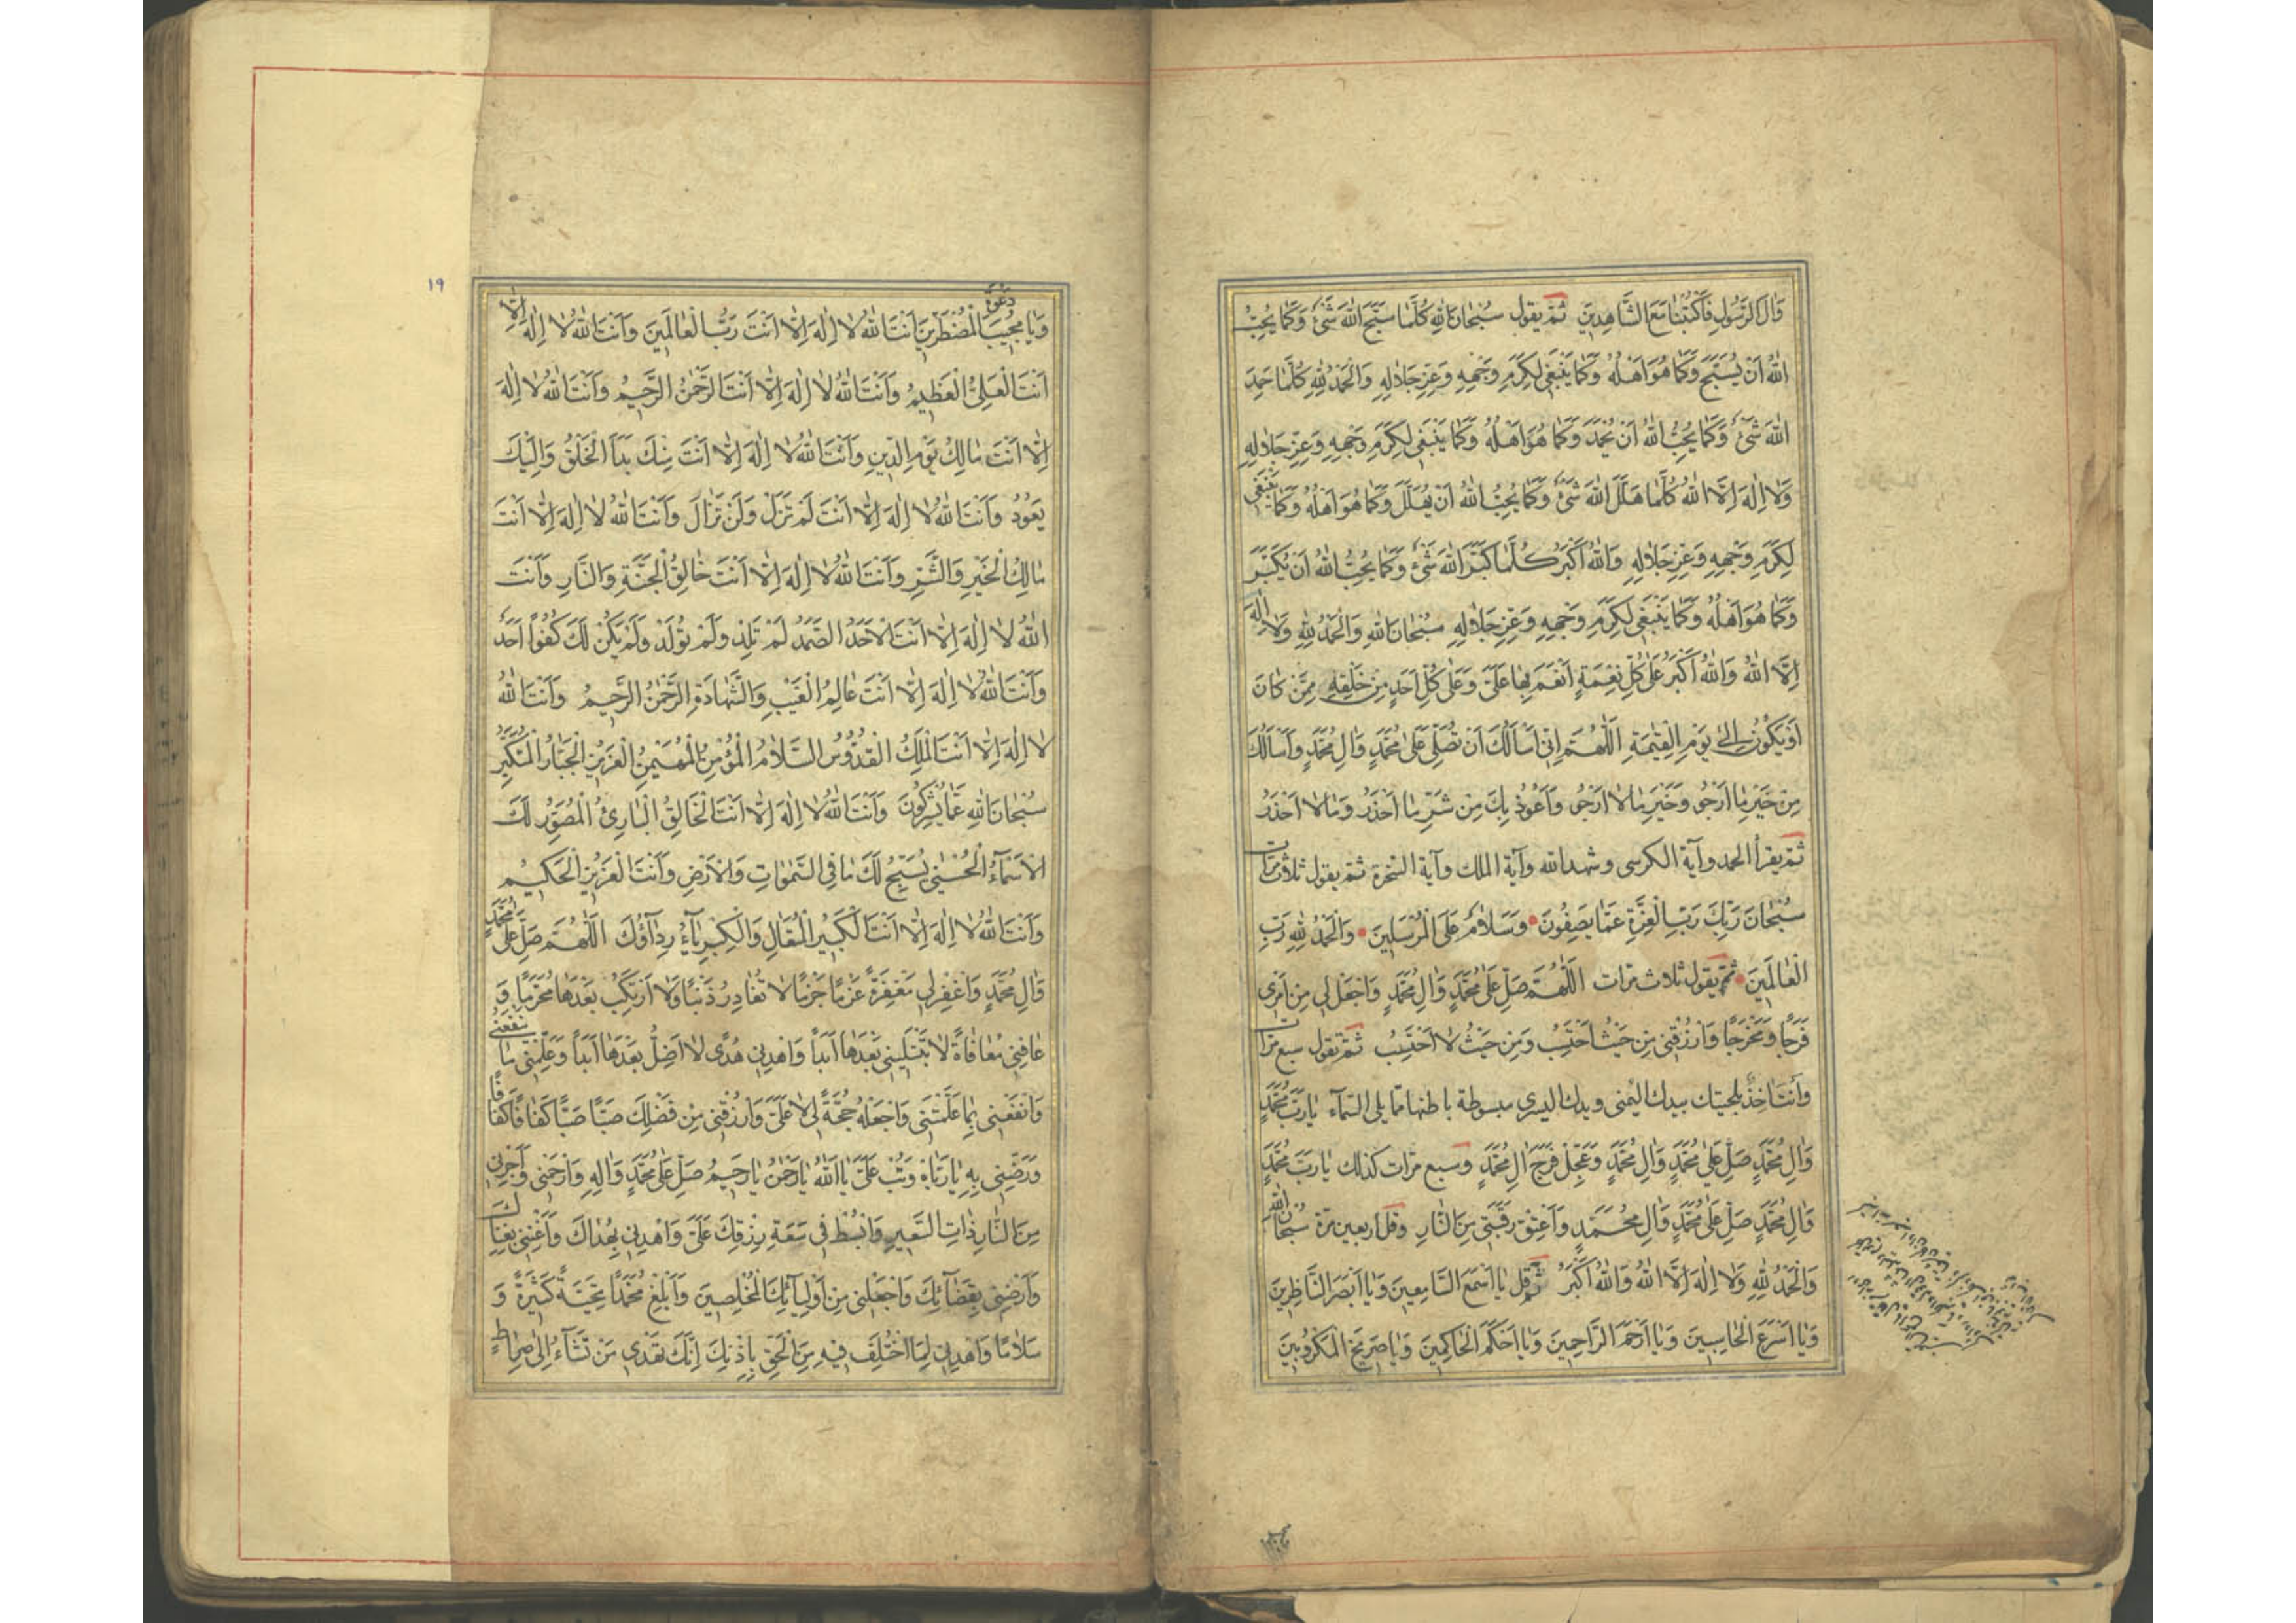 وَاٰلَ الرَّسُولِ فَاكْتُبْنَا مَعَ الشَّاهِدِينَ ثمّ يقول سُبْحَانَ اللّٰهِ كُلَّمَا سَبَّحَ اللّٰهَ شَىْءٌ وَكَمَا يُحِبُّ
اللّٰهُ اَنْ يُسَبَّحَ وَكَمَا هُوَ اَهْلُهُ وَكَمَا يَنْبَغِى لِكَرَمِ وَجْهِهِ وَعِزِّ جَلَالِهِ وَالْحَمْدُ لِلّٰهِ كُلَّمَا حَمِدَ
اللّٰهَ شَىْءٌ وَكَمَا يُحِبُّ اللّٰهُ اَنْ يُحْمَدَ وَكَمَا هُوَ اَهْلُهُ وَكَمَا يَنْبَغِى لِكَرَمِ وَجْهِهِ وَعِزِّ جَلَالِهِ
وَلَا اِلٰهَ اِلَّا اللّٰهُ كُلَّمَا هَلَّلَ اللّٰهَ شَىْءٌ وَكَمَا يُحِبُّ اللّٰهُ اَنْ يُهَلَّلَ وَكَمَا هُوَ اَهْلُهُ وَكَمَا يَنْبَغِى
لِكَرَمِ وَجْهِهِ وَعِزِّ جَلَالِهِ وَاللّٰهُ اَكْبَرُ كُلَّمَا كَبَّرَ اللّٰهَ شَىْءٌ وَكَمَا يُحِبُّ اللّٰهُ اَنْ يُكَبَّرَ
وَكَمَا هُوَ اَهْلُهُ وَكَمَا يَنْبَغِى لِكَرَمِ وَجْهِهِ وَعِزِّ جَلَالِهِ سُبْحَانَ اللّٰهِ وَالْحَمْدُ لِلّٰهِ وَلَا اِلٰهَ
اِلَّا اللّٰهُ وَاللّٰهُ اَكْبَرُ عَلٰى كُلِّ نِعْمَةٍ اَنْعَمَ بِهَا عَلَىَّ وَعَلٰى كُلِّ اَحَدٍ مِنْ خَلْقِهِ مِمَّنْ كَانَ
اَوْ يَكُونُ اِلٰى يَوْمِ الْقِيٰمَةِ اَللّٰهُمَّ اِنِّى اَسْاَلُكَ اَنْ تُصَلِّىَ عَلٰى مُحَمَّدٍ وَاٰلِ مُحَمَّدٍ وَاَسْاَلُكَ
مِنْ خَيْرِ مَا اَرْجُو وَخَيْرِ مَا لَا اَرْجُو وَاَعُوذُ بِكَ مِنْ شَرِّ مَا اَحْذَرُ وَمَا لَا اَحْذَرُ
ثمّ يقرأ الحمد وآية الكرسى وشهد الله وآية الملك وآية السخرة ثمّ يقول ثلاث مرّات
سُبْحَانَ رَبِّكَ رَبِّ الْعِزَّةِ عَمَّا يَصِفُونَ وَسَلَامٌ عَلَى الْمُرْسَلِينَ وَالْحَمْدُ لِلّٰهِ رَبِّ
الْعَالَمِينَ ثمّ يقول ثلاث مرّات اَللّٰهُمَّ صَلِّ عَلٰى مُحَمَّدٍ وَاٰلِ مُحَمَّدٍ وَاجْعَلْ لِى مِنْ اَمْرِى
فَرَجًا وَمَخْرَجًا وَارْزُقْنِى مِنْ حَيْثُ اَحْتَسِبُ وَمِنْ حَيْثُ لَا اَحْتَسِبُ ثمّ تقول سبع مرّات
وأنت اخذ بلحيتك بيدك اليمنى ويدك اليسرى مبسوطة باطنها ممّا يلى السّمآء يَا رَبَّ مُحَمَّدٍ
وَاٰلِ مُحَمَّدٍ صَلِّ عَلٰى مُحَمَّدٍ وَاٰلِ مُحَمَّدٍ وَعَجِّلْ فَرَجَ اٰلِ مُحَمَّدٍ وسبع مرّات كذلك يَا رَبَّ مُحَمَّدٍ
وَاٰلِ مُحَمَّدٍ صَلِّ عَلٰى مُحَمَّدٍ وَاٰلِ مُحَمَّدٍ وَاَعْتِقْ رَقَبَتِى مِنَ النَّارِ وقل اربعين مرّة سُبْحَانَ اللّٰهِ
وَالْحَمْدُ لِلّٰهِ وَلَا اِلٰهَ اِلَّا اللّٰهُ وَاللّٰهُ اَكْبَرُ ثمّ قل يَا اَسْمَعَ السَّامِعِينَ وَيَا اَبْصَرَ النَّاظِرِينَ
وَيَا اَسْرَعَ الْحَاسِبِينَ وَيَا اَرْحَمَ الرَّاحِمِينَ وَيَا اَحْكَمَ الْحَاكِمِينَ وَيَا صَرِيخَ الْمَكْرُوبِينَ
١٩
وَيَا مُجِيبَ دَعْوَةِ الْمُضْطَرِّينَ اَنْتَ اللّٰهُ لَا اِلٰهَ اِلَّا اَنْتَ رَبُّ الْعَالَمِينَ وَاَنْتَ اللّٰهُ لَا اِلٰهَ اِلَّا
اَنْتَ الْعَلِىُّ الْعَظِيمُ وَاَنْتَ اللّٰهُ لَا اِلٰهَ اِلَّا اَنْتَ الرَّحْمٰنُ الرَّحِيمُ وَاَنْتَ اللّٰهُ لَا اِلٰهَ
اِلَّا اَنْتَ مَالِكُ يَوْمِ الدِّينِ وَاَنْتَ اللّٰهُ لَا اِلٰهَ اِلَّا اَنْتَ مِنْكَ بَدَاَ الْخَلْقُ وَاِلَيْكَ
يَعُودُ وَاَنْتَ اللّٰهُ لَا اِلٰهَ اِلَّا اَنْتَ لَمْ تَزَلْ وَلَنْ تَزَالَ وَاَنْتَ اللّٰهُ لَا اِلٰهَ اِلَّا اَنْتَ
مَالِكُ الْخَيْرِ وَالشَّرِّ وَاَنْتَ اللّٰهُ لَا اِلٰهَ اِلَّا اَنْتَ خَالِقُ الْجَنَّةِ وَالنَّارِ وَاَنْتَ
اللّٰهُ لَا اِلٰهَ اِلَّا اَنْتَ الْاَحَدُ الصَّمَدُ لَمْ تَلِدْ وَلَمْ تُولَدْ وَلَمْ يَكُنْ لَكَ كُفُوًا اَحَدٌ
وَاَنْتَ اللّٰهُ لَا اِلٰهَ اِلَّا اَنْتَ عَالِمُ الْغَيْبِ وَالشَّهَادَةِ الرَّحْمٰنُ الرَّحِيمُ وَاَنْتَ اللّٰهُ
لَا اِلٰهَ اِلَّا اَنْتَ الْمَلِكُ الْقُدُّوسُ السَّلَامُ الْمُؤْمِنُ الْمُهَيْمِنُ الْعَزِيزُ الْجَبَّارُ الْمُتَكَبِّرُ
سُبْحَانَ اللّٰهِ عَمَّا يُشْرِكُونَ وَاَنْتَ اللّٰهُ لَا اِلٰهَ اِلَّا اَنْتَ الْخَالِقُ الْبَارِئُ الْمُصَوِّرُ لَكَ
الْاَسْمَآءُ الْحُسْنٰى يُسَبِّحُ لَكَ مَا فِى السَّمٰوَاتِ وَالْاَرْضِ وَاَنْتَ الْعَزِيزُ الْحَكِيمُ
وَاَنْتَ اللّٰهُ لَا اِلٰهَ اِلَّا اَنْتَ الْكَبِيرُ الْمُتَعَالِ وَالْكِبْرِيَآءُ رِدَآؤُكَ اَللّٰهُمَّ صَلِّ عَلٰى مُحَمَّدٍ
وَاٰلِ مُحَمَّدٍ وَاغْفِرْ لِى مَغْفِرَةً عَزْمًا جَزْمًا لَا تُغَادِرُ ذَنْبًا وَلَا اَرْتَكِبُ بَعْدَهَا مُحَرَّمًا وَ
عَافِنِى مُعَافَاةً لَا تَبْتَلِيَنِى بَعْدَهَا اَبَدًا وَاهْدِنِى هُدًى لَا اَضِلُّ بَعْدَهَا اَبَدًا وَعَلِّمْنِى مَا يَنْفَعُنِى
وَانْفَعْنِى بِمَا عَلَّمْتَنِى وَاجْعَلْهُ حُجَّةً لِى لَا عَلَىَّ وَارْزُقْنِى مِنْ فَضْلِكَ صَبًّا صَبًّا كَفَافًا كَفَافًا
وَرَضِّنِى بِهِ يَا رَبَّاهُ وَتُبْ عَلَىَّ يَا اَللّٰهُ يَا رَحْمٰنُ يَا رَحِيمُ صَلِّ عَلٰى مُحَمَّدٍ وَاٰلِهِ وَارْحَمْنِى وَاَجِرْنِى
مِنَ النَّارِ ذَاتِ السَّعِيرِ وَابْسُطْ فِى سَعَةِ رِزْقِكَ عَلَىَّ وَاهْدِنِى بِهُدَاكَ وَاَغْنِنِى بِغِنَاكَ
وَاَرْضِنِى بِقَضَآئِكَ وَاجْعَلْنِى مِنْ اَوْلِيَآئِكَ الْمُخْلِصِينَ وَاَبْلِغْ مُحَمَّدًا تَحِيَّةً كَثِيرَةً وَ
سَلَامًا وَاهْدِنِى لِمَا اخْتُلِفَ فِيهِ مِنَ الْحَقِّ بِاِذْنِكَ اِنَّكَ تَهْدِى مَنْ تَشَآءُ اِلٰى صِرَاطٍ